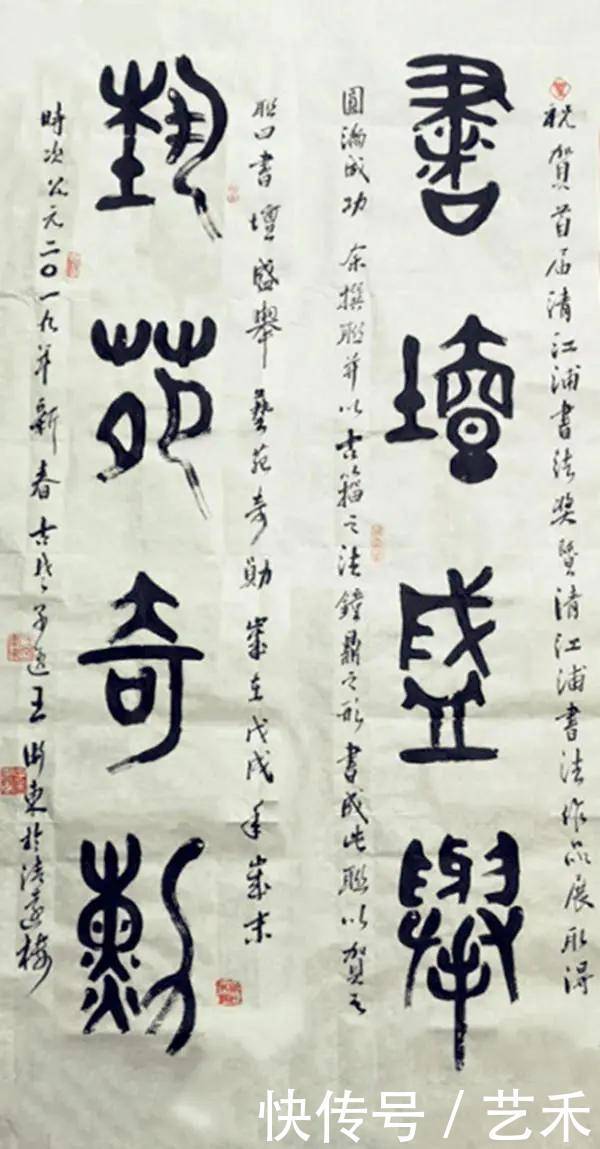 祝賀首届清江浦書法奖暨清江浦書法作品展取得
書壇盛舉
圓滿成功 余撰聯并以古籀之法鐘鼎之形書成此聯以賀之
聯曰書壇盛舉藝苑奇勛歲在戊戌年歲末
藝苑奇勳
時次公元二〇一九年新春古 王衛東於清
快传号 / 艺禾